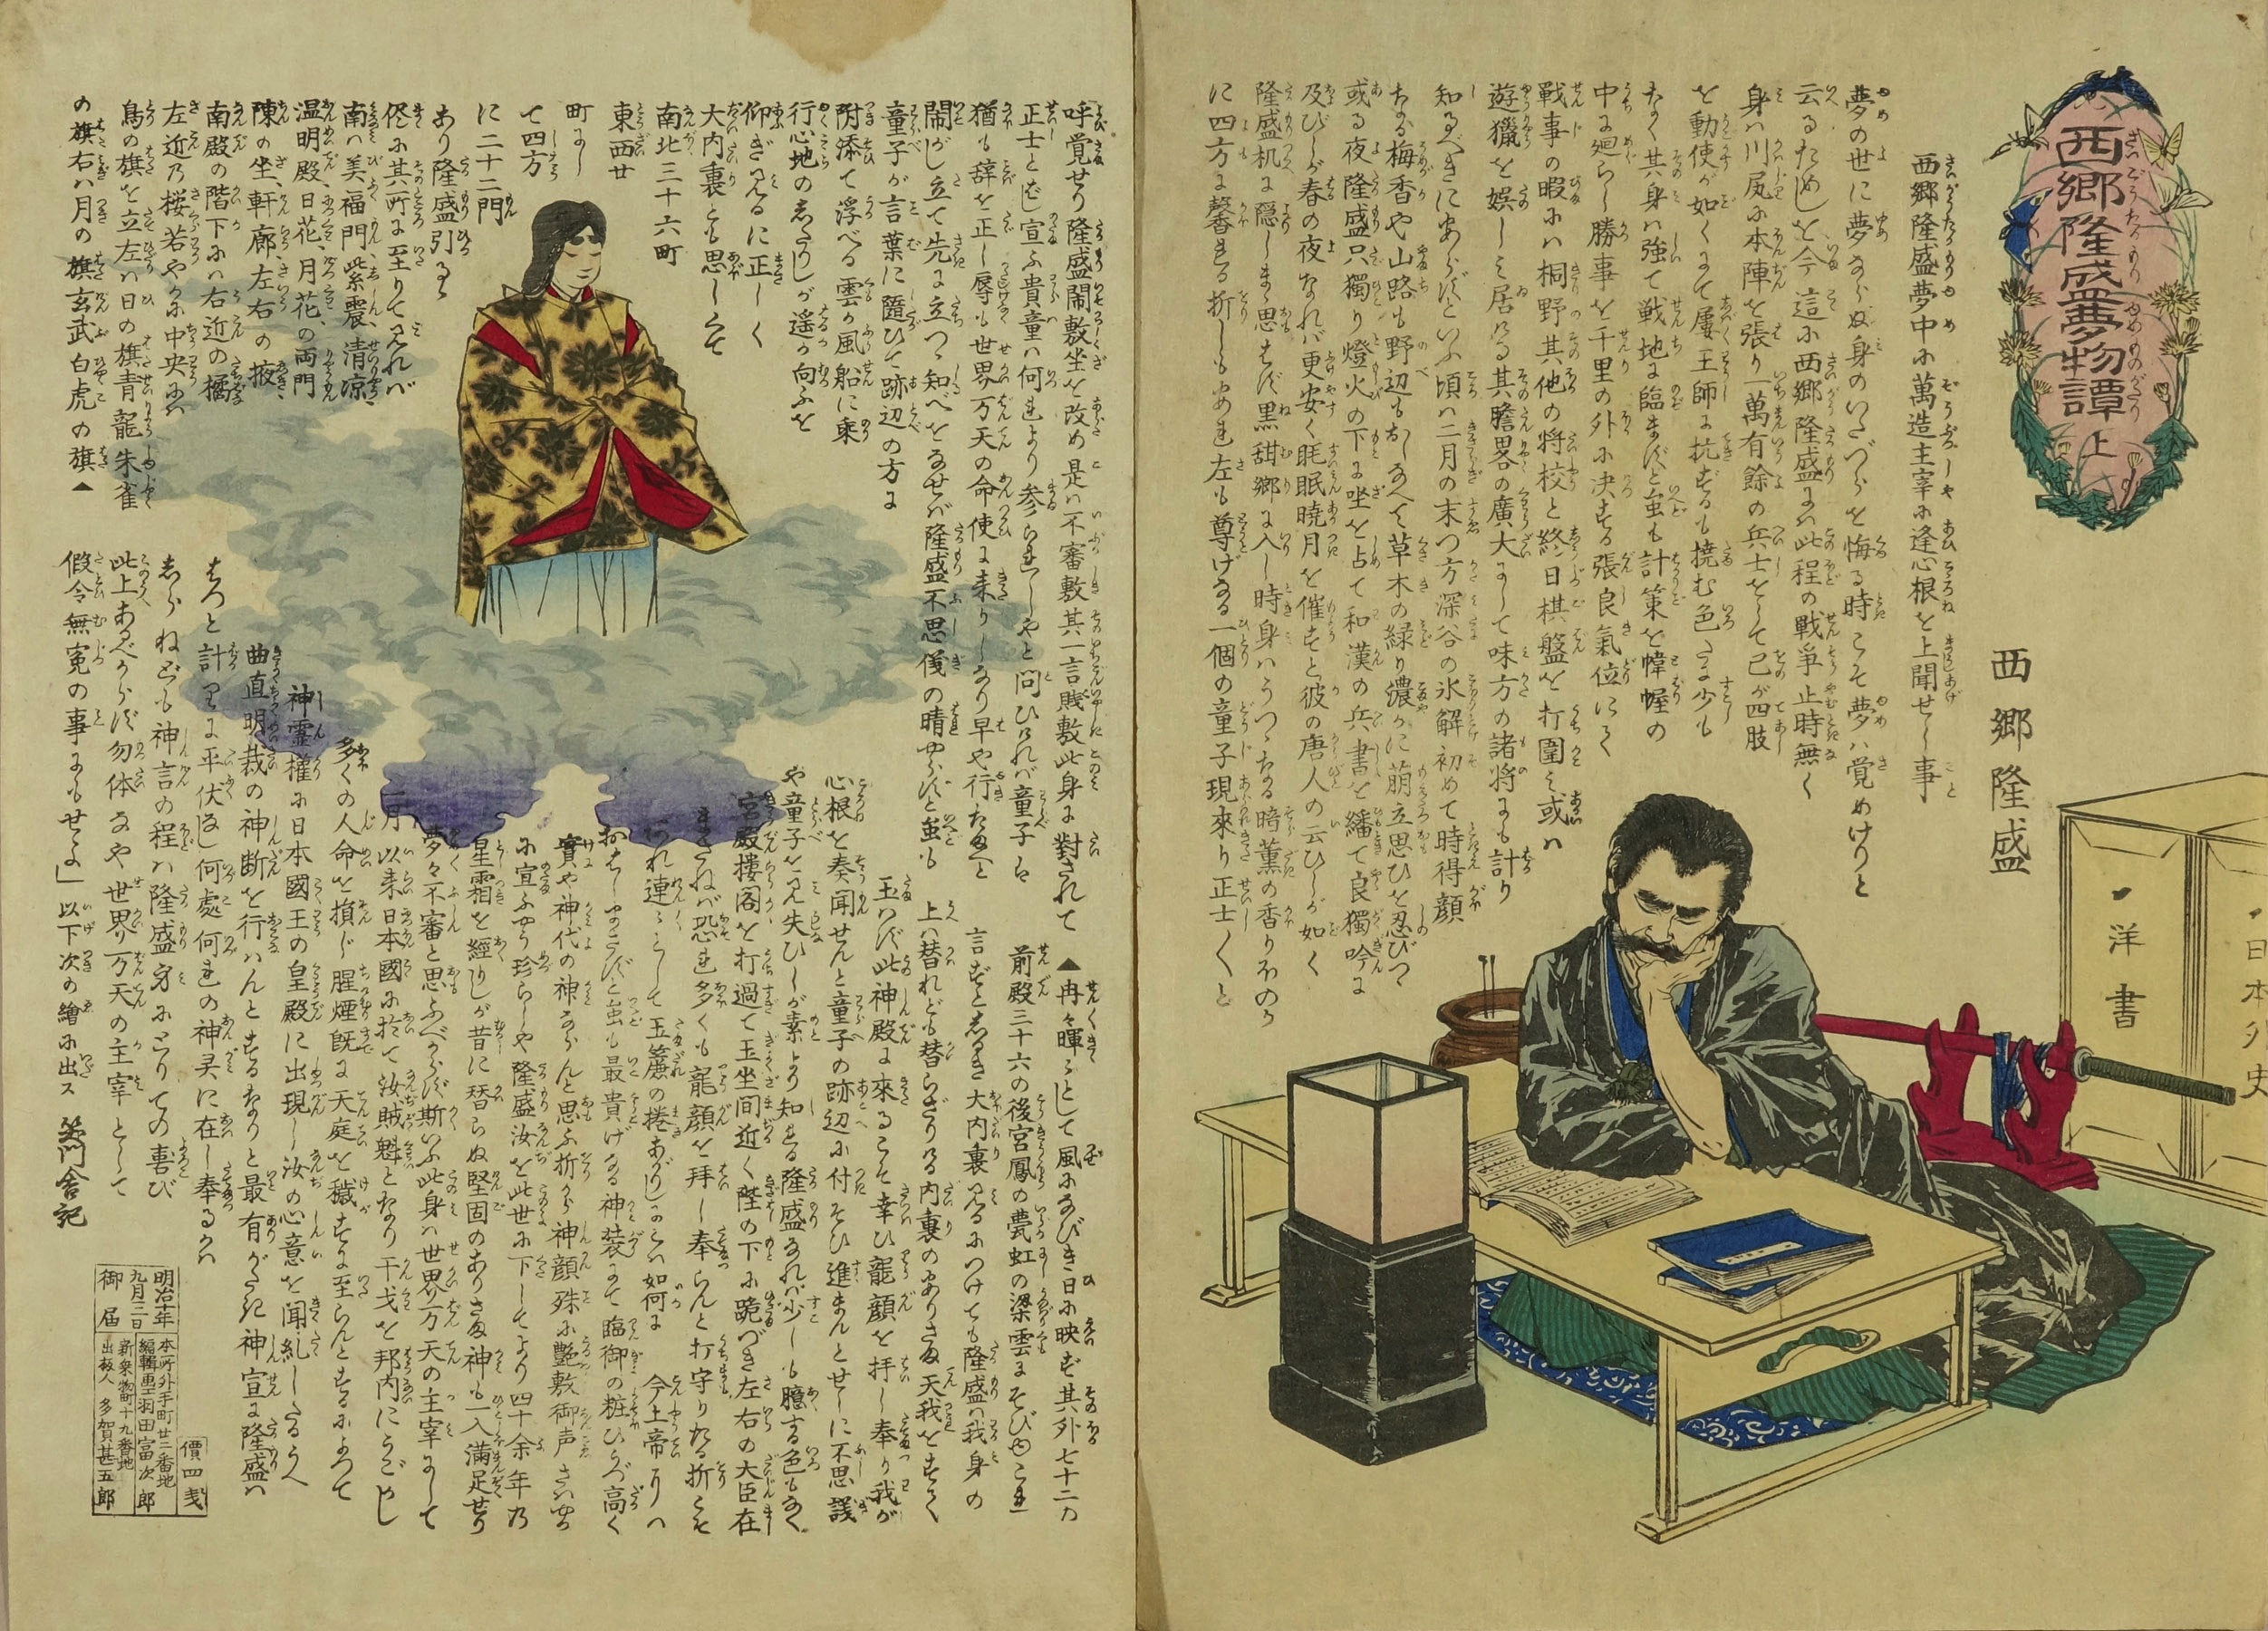 西郷隆盛夢物譚 上
西郷隆盛
西郷隆盛夢中に萬造主宰に逢心根を上聞せし事
夢の世に夢ならぬ身のいたづらを悔る時こそ夢ハ覚めけりと
云るためしを今這に西郷隆盛にハ此程の戦争止時無く
身ハ川尻に本陣を張り一萬有餘の兵士をして己が四肢
を動使が如くにて屢王師に抗するも撓む色さに少も
なく其身ハ強て戦地に臨まずと虽も計策を幃幄の
中に廻らし勝事を千里の外に决する張良氣位にて
戦事の暇にハ桐野其他の将校と終日棋盤を打圍ミ或ハ
遊獵を娯しミ居ける其膽畧の廣大にして味方の諸将にも計り
知るべきにあらずといふ頃ハ二月の末つ方深谷の氷解初めて時得顔
なる梅香や山路も野辺もおしなべて草木の緑り濃かに萠立思ひを忍びつゝ
或る夜隆盛只獨り燈火の下に坐を占て和漢の兵書を繙て良獨吟に
及びしが春の夜なれバ更安く眊眠暁月を催すと彼の唐人の云ひしが如く
隆盛机に隠しまゝ思はず黒甜郷に入し時身ハうつゝなる暗薫の香りほのか
に四方に馨れる折しもあれ左も尊げなる一個の童子現来り正士〱と
呼覚せり隆盛閙敷坐を改め是ハ不審敷其一言賎敷此身に對されて
正士とぞ宣ふ貴童ハ何れより参られしやと問ひけれバ童子ハ
猶も辞を正し辱も世界万天の命使に来りしなり早や行たまへと
閙がし立て先に立つゝ知べをなせバ隆盛不思儀の晴やらずと虽も
童子が言葉に隨ひて跡辺の方に
附添て浮べる雲か風船に乗
行心地のしたりしが遥か向ふを
仰ぎ見るに正しく
大内裏とも思しくて
南北三十六町
東西廿
町にし
て四方
に二十二門
あり隆盛引る
侭に其町に至りて見れバ
南ハ美福門、紫震、清凉、
温明殿、日花、月花の両門
陳の坐、軒廊、左右の掖
南殿の階下にハ右近の橘
左近乃桜若やかに中央にハ
鳥の旗を立左ハ日の旗青龍朱雀
の旗右ハ月の旗玄武白虎の旗▲
▲冉々暉々として風になびき日に映ず其外七十二の
前殿三十六の後宮鳳の甍虹の梁雲にそびやこれ
言ずとしるき大内裏見るにつけても隆盛ハ我身の
上ハ替れども替らざりける内裏のありさま天我をすてた
玉ハず此神殿に來るこそ幸ひ龍顔を拝し奉り我が
心根を奏聞せんと童子の跡辺に付そひ進まんとせしに不思議
や童子を見失ひしが素より知れる隆盛なれバ少しも臆する色もなく
宮殿樓阁を打過て玉坐間近く陛の下に跪づき左右の大臣在
まさねバ恐れ多くも龍顔を拜し奉らんと打守りたる折こそ
あれ連〻として玉簾の捲あがりしにハ如何に今上帝りハ
おはしまさずと虽も最貴げなる神裝にて臨御の粧ひいづ高く
實や神代の神ならんと思ふ折から神顔殊に艶敷御声さハやか
に宣ふやう珍らしや隆盛汝を此世に下してより四十余年乃
星霜を經りしが昔に替らぬ堅固のありさま神も一入満足せり
夢々不審と思ふべからず斯いふ此身ハ世界万天の主宰にして
二月以来日本國に於て汝賊魁となり干戈を邦内にうごかし
多くの人命を損じ腥煙既に天庭を穢すに至らんとするによつて
神霊權に日本國王の皇殿に出現し汝の心意を聞糺したるうへ
曲直明裁の神断を行ハんとするなりと最有がたき神宣に隆盛ハ
はつと計りに平伏なし何處何れの神灵に在し奉るかハ
しらねども神言の程ハ隆盛身にとりての喜び
此上あるべからず勿体なや世界万天の主宰として
假令無寃の事にもせよ」以下次の繪に出ス 笑門舎記
明治十年
九月三日
御届
本所外手町廿二番地
編輯画工 羽田富次郎
新乗物町十九番地
出板人 多賀甚五郎
價四戔
洋書
日本外史